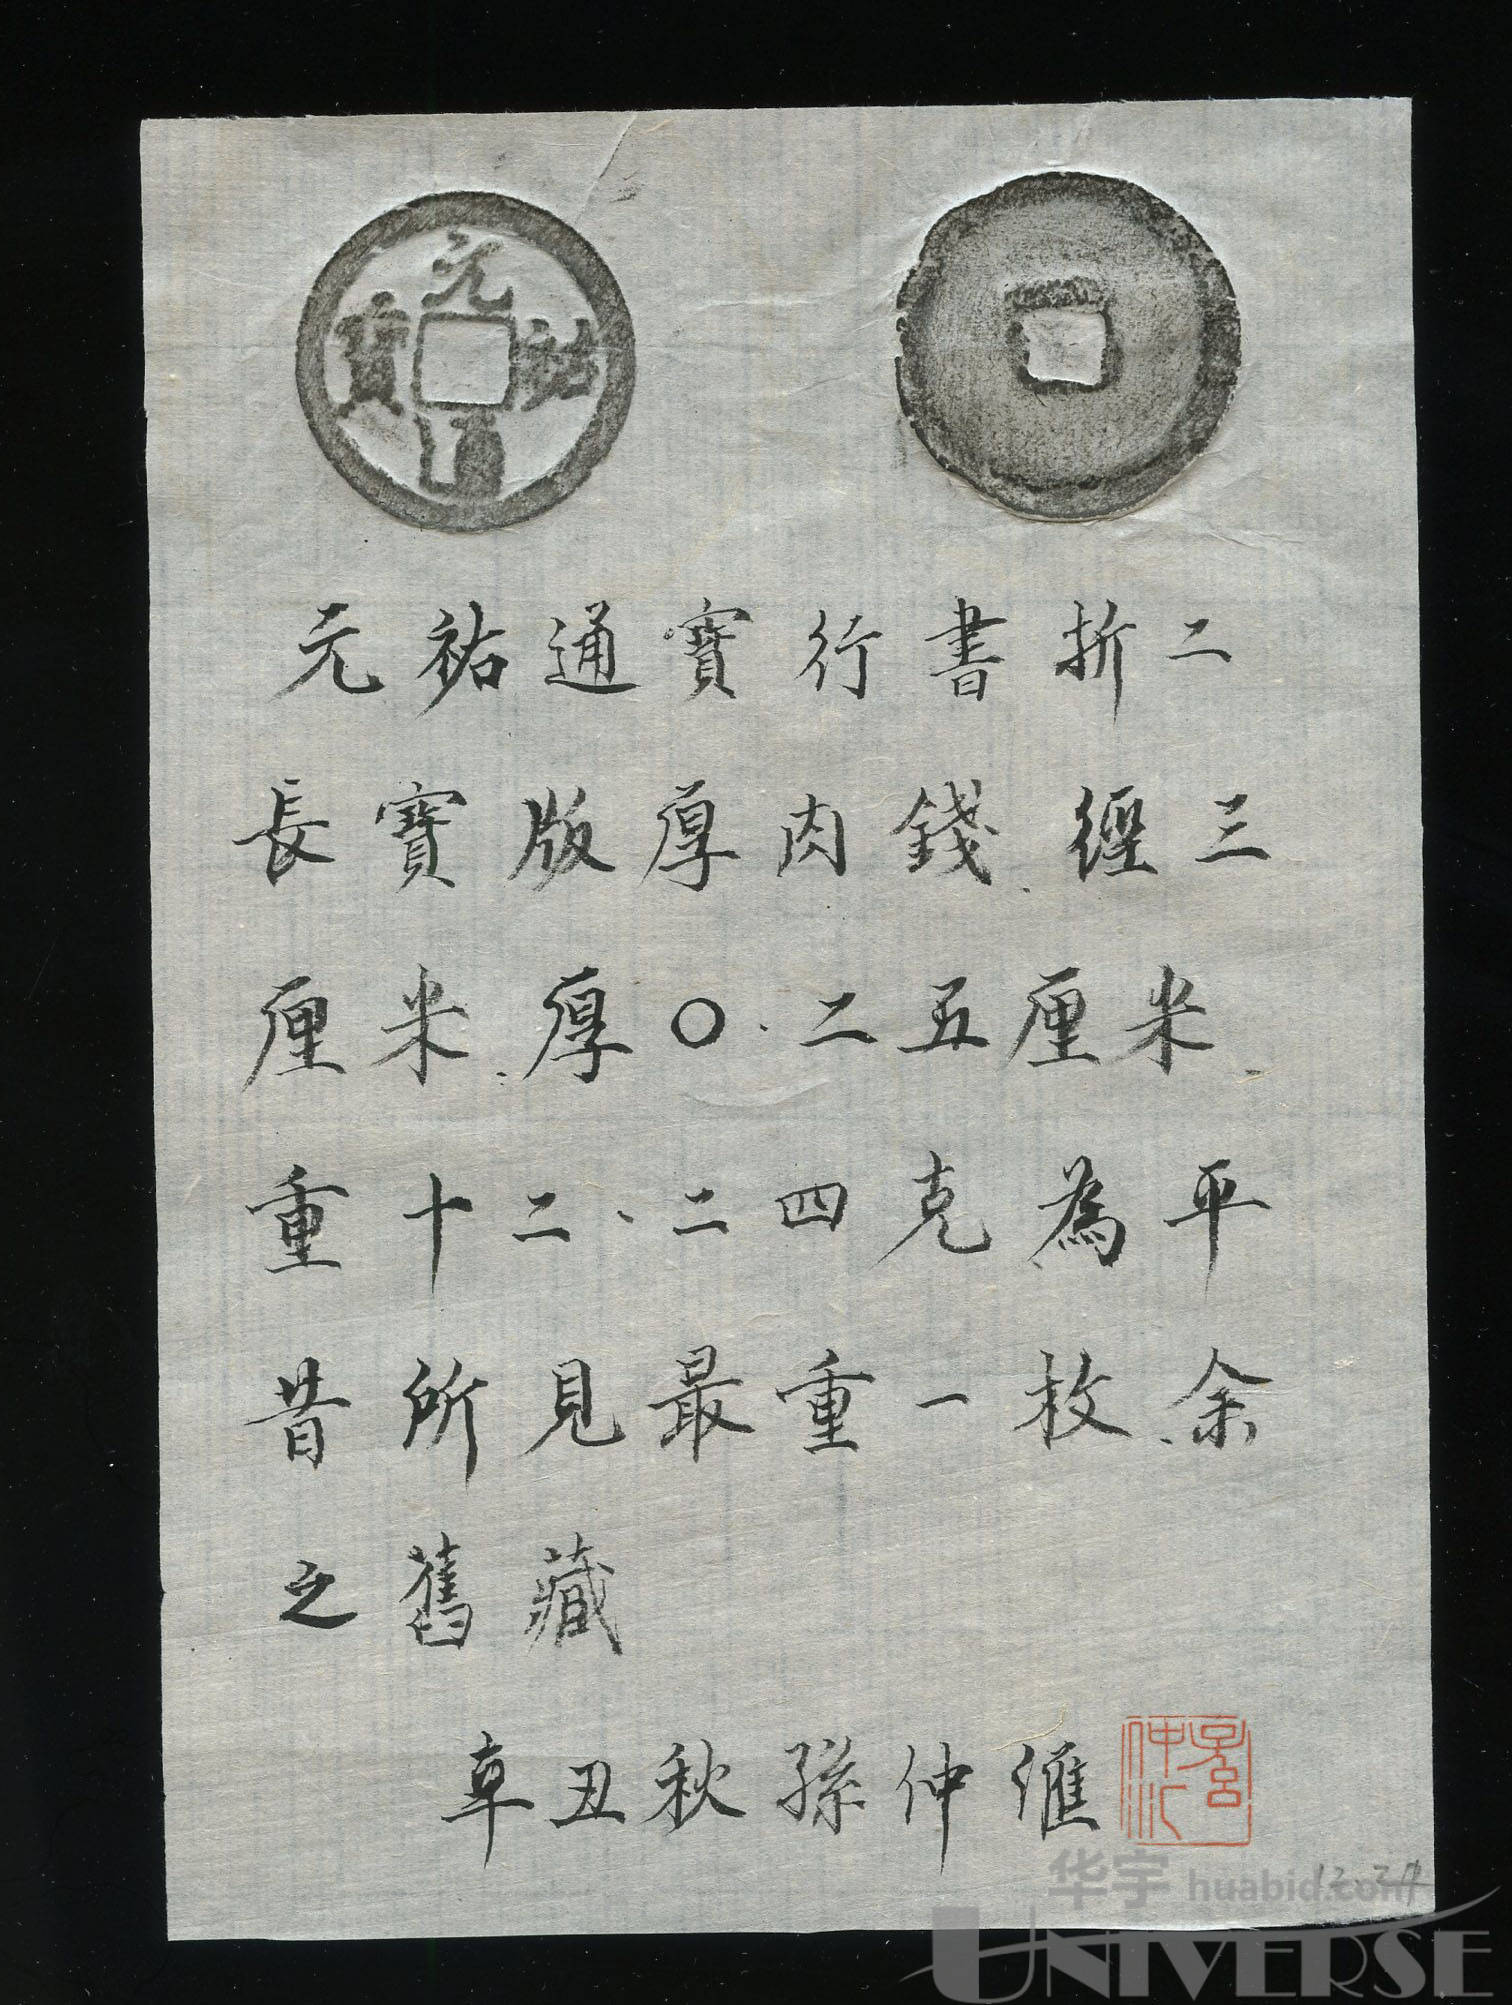 元祐通寶
元祐通寶行書折二
長寶版厚肉錢、經三
厘米、厚〇.二五厘米、
重十二.二四克、為平
昔所見最重一枚、余
之舊藏
辛丑秋孫仲匯
12.24
华宇 huabid.com
UNIVERSE